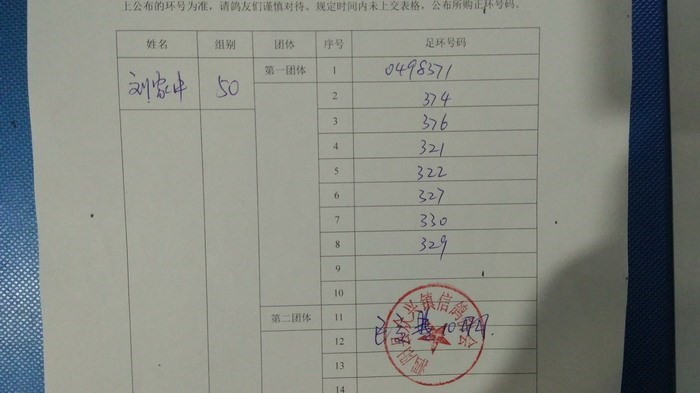 上公布的环号为准，请鸽友们谨慎对待。规定时间内未上交表格，公布所购正环号码。
姓名 组别 团体 序号 足环号码
刘家中 50 第一团体 1 0498371
2 374
3 376
4 321
5 322
6 327
7 330
8 329
9
10
第二团体 11
12
13
14
兴镇信鸽